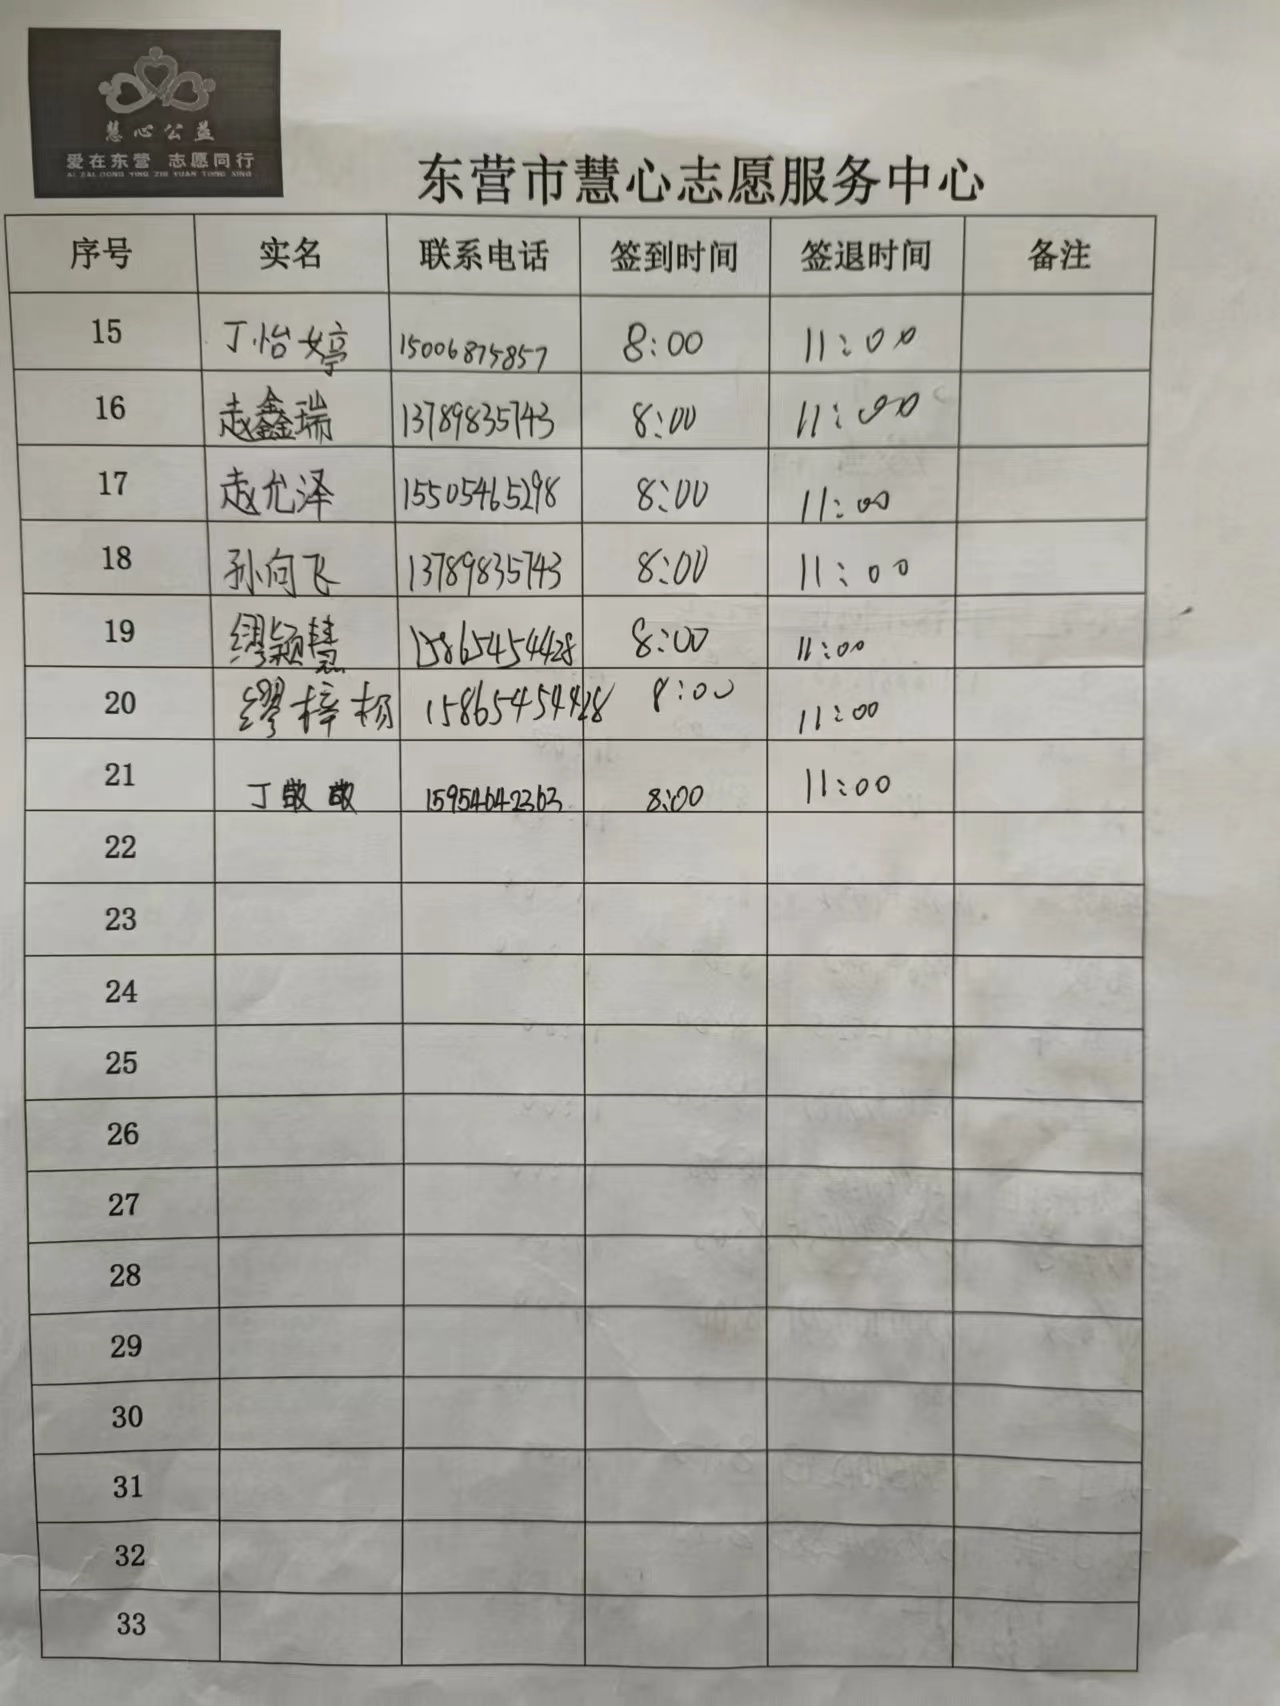 慧心公益
爱在东营 志愿同行
AI ZAI DONG YING ZHI YUAN TONG XING
东营市慧心志愿服务中心
序号 实名 联系电话 签到时间 签退时间 备注
15 丁怡婷 15006875857 8:00 11:00
16 赵鑫瑞 13789835743 8:00 11:00
17 赵允泽 15505465298 8:00 11:00
18 孙向飞 13789835743 8:00 11:00
19 缪颖慧 15865454428 8:00 11:00
20 缪梓杨 15865454428 8:00 11:00
21 丁敬敬 15954642363 8:00 11:00
22
23
24
25
26
27
28
29
30
31
32
33